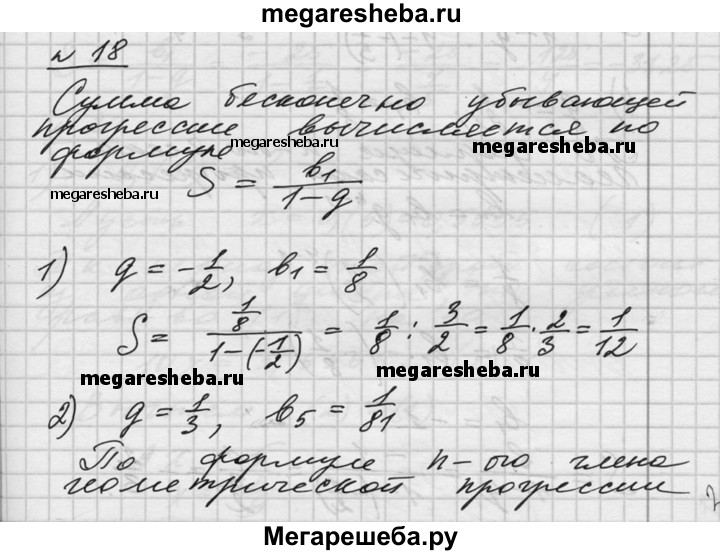 megaresheba.ru
№ 18
Сумма бесконечно убывающей
прогрессии вычисляется по
формуле megaresheba.ru megaresheba.ru
megaresheba.ru S = b₁/(1-q)
1) q = -1/2, b₁ = 1/8
S = (1/8)/(1-(-1/2)) = 1/8 : 3/2 = 1/8 · 2/3 = 1/12
megaresheba.ru megaresheba.ru
2) q = 1/3, b₅ = 1/81
По формуле n-ого члена
геометрической прогрессии
Мегарешеба.ру